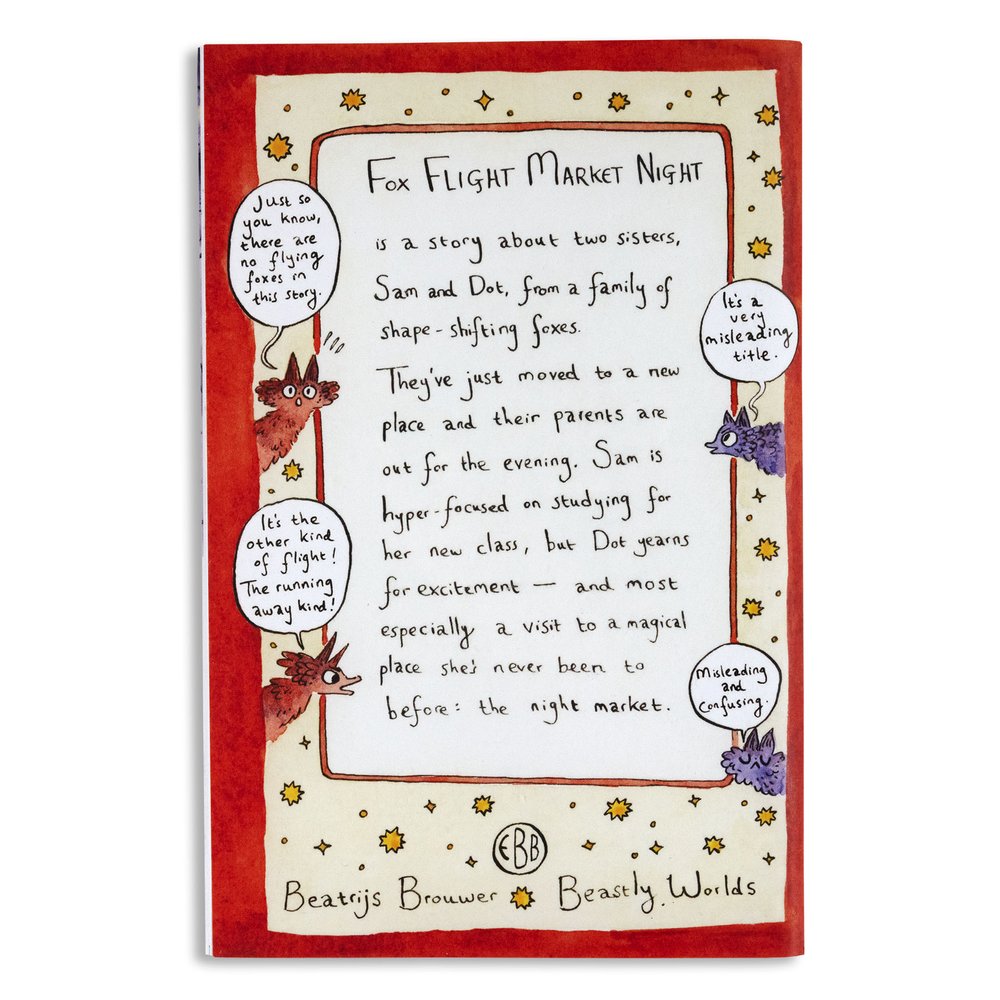 Fox Flight Market Night
is a story about two sisters,
Sam and Dot, from a family of
shape-shifting foxes.
They've just moved to a new
place and their parents are
out for the evening. Sam is
hyper-focused on studying for
her new class, but Dot yearns
for excitement — and most
especially a visit to a magical
place she's never been to
before: the night market.
Just so
you know,
there are
no flying
foxes in
this story.
It's a
very
misleading
title.
It's the
other kind
of flight!
The running
away kind!
Misleading
and
confusing.
EBB
Beatrijs Brouwer Beastly Worlds